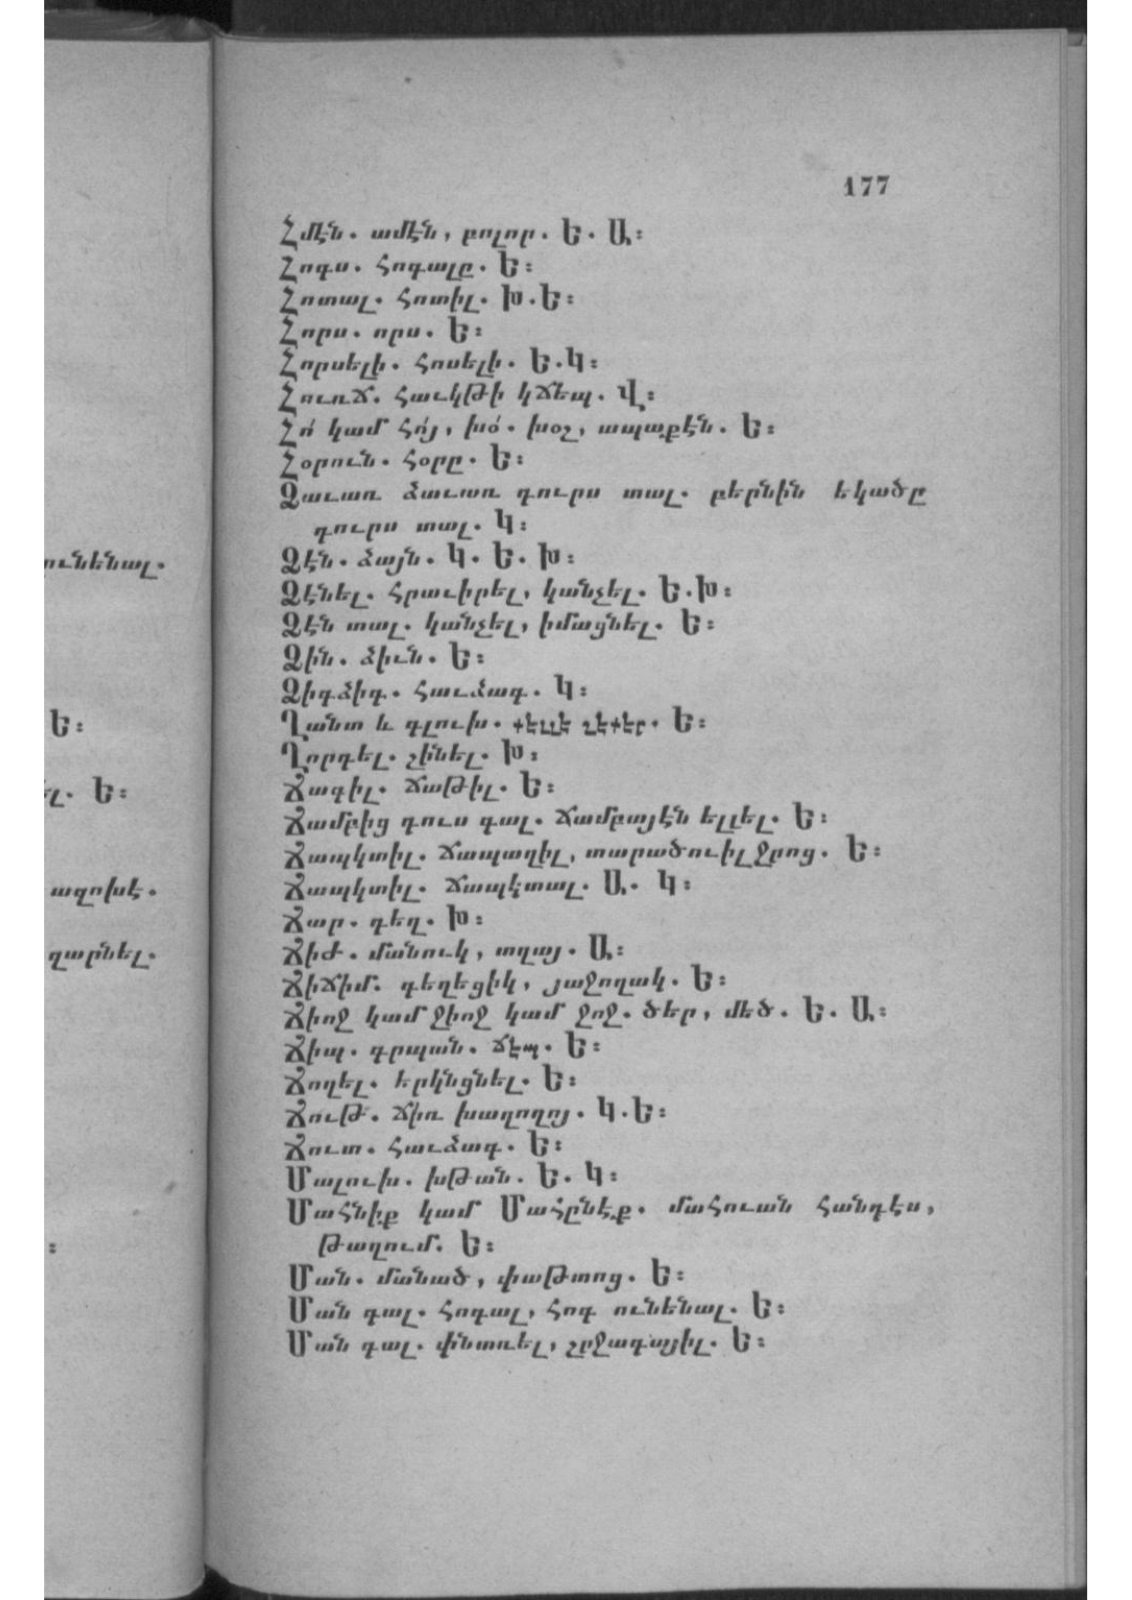 177
Հմէն. ամէն, բոլոր. Ե. Ա:
Հոգս. Հոգալը. Ե:
Հոտալ. Հոտիլ. Խ.Ե:
Հորս. որս. Ե:
Հորսելի. Հոսելի. Ե.Կ:
Հուռճ. Հաւկթի կճեպ. Վ:
Հո՛ կամ Հո՛յ, խօ՛. խօշ, ապաքէն. Ե:
Հօրուն. Հօրը. Ե:
Ձաւառ ձաւառ դուրս տալ. բերնին եկածը
դուրս տալ. Կ:
Ձէն. ձայն. Կ. Ե. Խ:
Ձէնել. Հրաւիրել, կանչել. Ե.Խ:
Ձէն տալ. կանչել, իմացնել. Ե:
Ձին. ձիւն. Ե:
Ձիգձիգ. Հաւձագ. Կ:
Ղանտ և գլուխ. քէլլէ շէքէր. Ե:
Ղորդել. շինել. Խ:
Ճագիլ. ճաթիլ. Ե:
Ճամբից դուս գալ. ճամբայէն ելլել. Ե:
Ճապկտիլ. ճապաղիլ, տարածուիլ ջրոց. Ե:
Ճապկտիլ. ճապկտալ. Ա. Կ:
Ճար. դեղ. Խ:
Ճիժ. մանուկ, տղայ. Ա:
Ճիճիմ. գեղեցիկ, յաջողակ. Ե:
Ճիոջ կամ ջիոջ կամ ջոջ. ծեր, մեծ. Ե. Ա:
Ճիպ. գրպան. ճէպ. Ե:
Ճողել. երկնցնել. Ե:
Ճութ. ճիռ խաղողոյ. Կ.Ե:
Ճուտ. Հաւձագ. Ե:
Մալուխ. խթան. Ե. Կ:
Մահնիք կամ Մահընէք. մահուան հանդէս,
թաղում. Ե:
Ման. մանած, փաթտոց. Ե:
Ման գալ. Հոգալ, Հոգ ունենալ. Ե:
Ման գալ. փնտռել, շրջագայիլ. Ե: